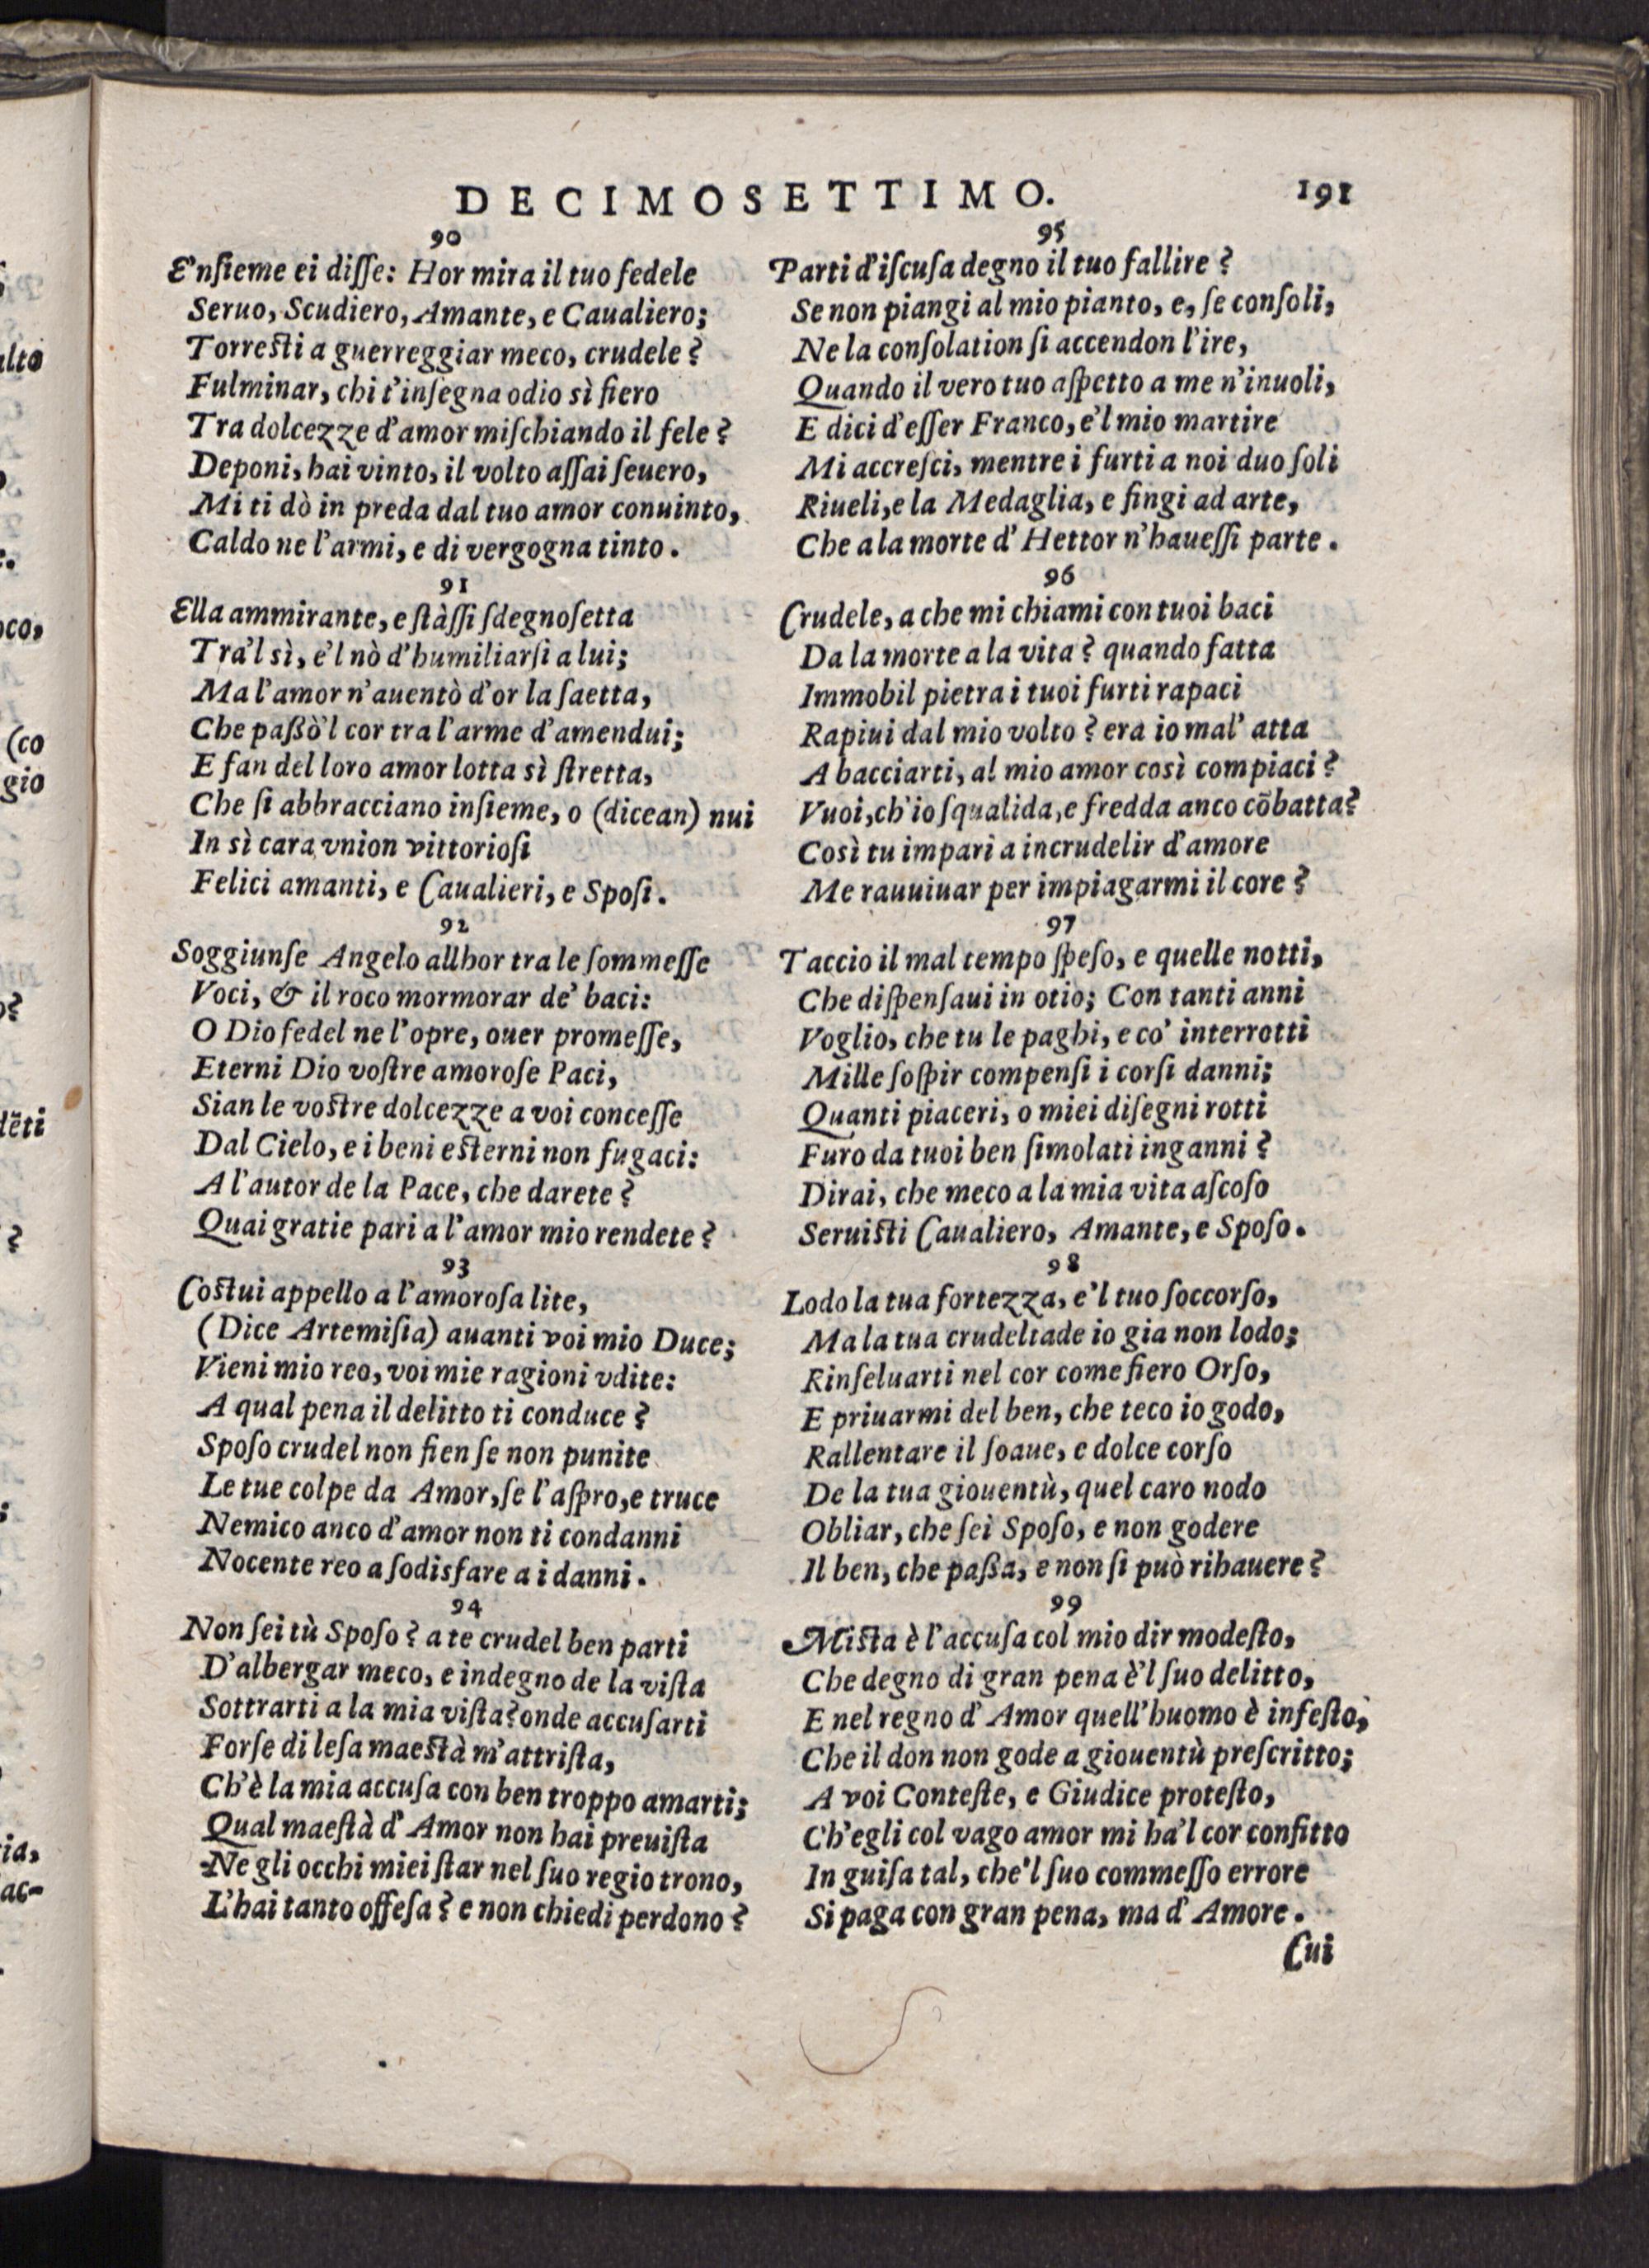 DECIMOSETTIMO. 191
90
E'nſieme ei diſſe: Hor mira il tuo fedele
Seruo, Scudiero, Amante, e Caualiero;
Torreſti a guerreggiar meco, crudele?
Fulminar, chi t'inſegna odio sì fiero
Tra dolcezze d'amor miſchiando il fele?
Deponi, hai vinto, il volto aſſai ſeuero,
Mi ti dò in preda dal tuo amor conuinto,
Caldo ne l'armi, e di vergogna tinto.
91
Ella ammirante, e ſtàſſi ſdegnoſetta
Tra'l sì, e'l nò d'humiliarſi a lui;
Ma l'amor n'auentò d'or la ſaetta,
Che paßò'l cor tra l'arme d'amendui;
E fan del loro amor lotta sì ſtretta,
Che ſi abbracciano inſieme, o (dicean) nui
In sì cara vnion vittorioſi
Felici amanti, e Caualieri, e Spoſi.
92
Soggiunſe Angelo allhor tra le ſommeſſe
Voci, & il roco mormorar de' baci:
O Dio fedel ne l'opre, ouer promeſſe,
Eterni Dio voſtre amoroſe Paci,
Sian le voſtre dolcezze a voi conceſſe
Dal Cielo, e i beni eſterni non fugaci:
A l'autor de la Pace, che darete?
Quai gratie pari a l'amor mio rendete?
93
Coſtui appello a l'amoroſa lite,
(Dice Artemiſia) auanti voi mio Duce;
Vieni mio reo, voi mie ragioni vdite:
A qual pena il delitto ti conduce?
Spoſo crudel non fien ſe non punite
Le tue colpe da Amor, ſe l'aſpro, e truce
Nemico anco d'amor non ti condanni
Nocente reo a ſodisfare a i danni.
94
Non ſei tù Spoſo? a te crudel ben parti
D'albergar meco, e indegno de la viſta
Sottrarti a la mia viſta? onde accuſarti
Forſe di leſa maeſtà m'attriſta,
Ch'è la mia accuſa con ben troppo amarti;
Qual maeſtà d'Amor non hai preuiſta
Ne gli occhi miei ſtar nel ſuo regio trono,
L'hai tanto offeſa? e non chiedi perdono?
95
Parti d'iſcuſa degno il tuo fallire?
Se non piangi al mio pianto, e, ſe conſoli,
Ne la conſolation ſi accendon l'ire,
Quando il vero tuo aſpetto a me n'inuoli,
E dici d'eſſer Franco, e'l mio martire
Mi accreſci, mentre i furti a noi duo ſoli
Riueli, e la Medaglia, e fingi ad arte,
Che a la morte d'Hettor n'haueſſi parte.
96
Crudele, a che mi chiami con tuoi baci
Da la morte a la vita? quando fatta
Immobil pietra i tuoi furti rapaci
Rapiui dal mio volto? era io mal' atta
A bacciarti, al mio amor così compiaci?
Vuoi, ch'io ſqualida, e fredda anco cõbatta?
Così tu impari a incrudelir d'amore
Me rauuiuar per impiagarmi il core?
97
Taccio il mal tempo ſpeſo, e quelle notti,
Che diſpenſaui in otio; Con tanti anni
Voglio, che tu le paghi, e co' interrotti
Mille ſoſpir compenſi i corſi danni;
Quanti piaceri, o miei diſegni rotti
Furo da tuoi ben ſimolati inganni?
Dirai, che meco a la mia vita aſcoſo
Seruiſti Caualiero, Amante, e Spoſo.
98
Lodo la tua fortezza, e'l tuo ſoccorſo,
Ma la tua crudeltade io gia non lodo;
Rinſeluarti nel cor come fiero Orſo,
E priuarmi del ben, che teco io godo,
Rallentare il ſoaue, e dolce corſo
De la tua giouentù, quel caro nodo
Obliar, che ſei Spoſo, e non godere
Il ben, che paßa, e non ſi può rihauere?
99
Miſta è l'accuſa col mio dir modeſto,
Che degno di gran pena è'l ſuo delitto,
E nel regno d'Amor quell'huomo è infeſto,
Che il don non gode a giouentù preſcritto;
A voi Conteſte, e Giudice proteſto,
Ch'egli col vago amor mi ha'l cor confitto
In guiſa tal, che'l ſuo commeſſo errore
Si paga con gran pena, ma d'Amore.
Cui